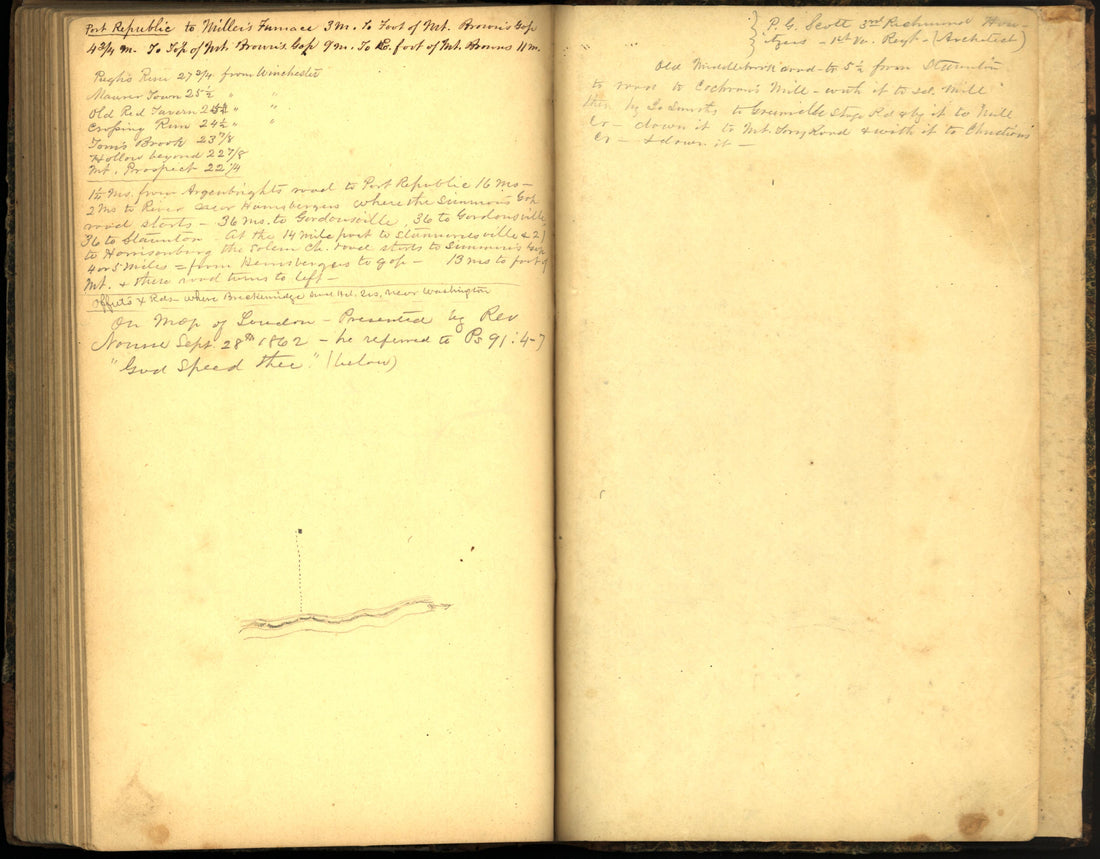 Port Republic to Miller's Furnace 3 m. To Foot of Mt. Brown's Gap
4 3/4 m. To Top of Mt. Brown's Gap 9 m. To E. foot of Mt. Browns 11 m.
Pugh's Run 27 3/4 from Winchester
Maurer Town 25 1/2 " "
Old Red Tavern 25 1/4 " "
Crossing Run 24 1/2 " "
Tom's Brook 23 7/8
Hollow beyond 22 7/8
Mt. Prospect 22 1/4
1 1/2 ms. from Argenbrights road to Port Republic 16 ms -
2 ms to River near where the Simmons Gap
road starts - 36 ms. to Gordonsville 36 to Gordonsville
36 to Staunton - At the 14 mile post to Stannersville & 21
to Harrisonburg the Salem Ch. road starts to Simmons Gap
4 or 5 miles = from to gap - 13 ms to foot of
Mt. & there road turns to left -
& Rds - where Breckenridge near Washington
On Map of London - Presented by Rev
Nourse Sept. 28th 1862 - he referred to Ps 91:4-7
"God Speed thee." (below)
P. G. Scott 3rd Richmond How-
itzers - 1st Va. Regt - (Architect)
Old Middlebrook road - to 5 1/2 from Staunton
to road to Cochran's Mill - with it to Mill
then by to Greenville Stage Rd & by it to Mill
Cr - down it to Mt. Torry Road & with it to Christian's
Cr - & down it -